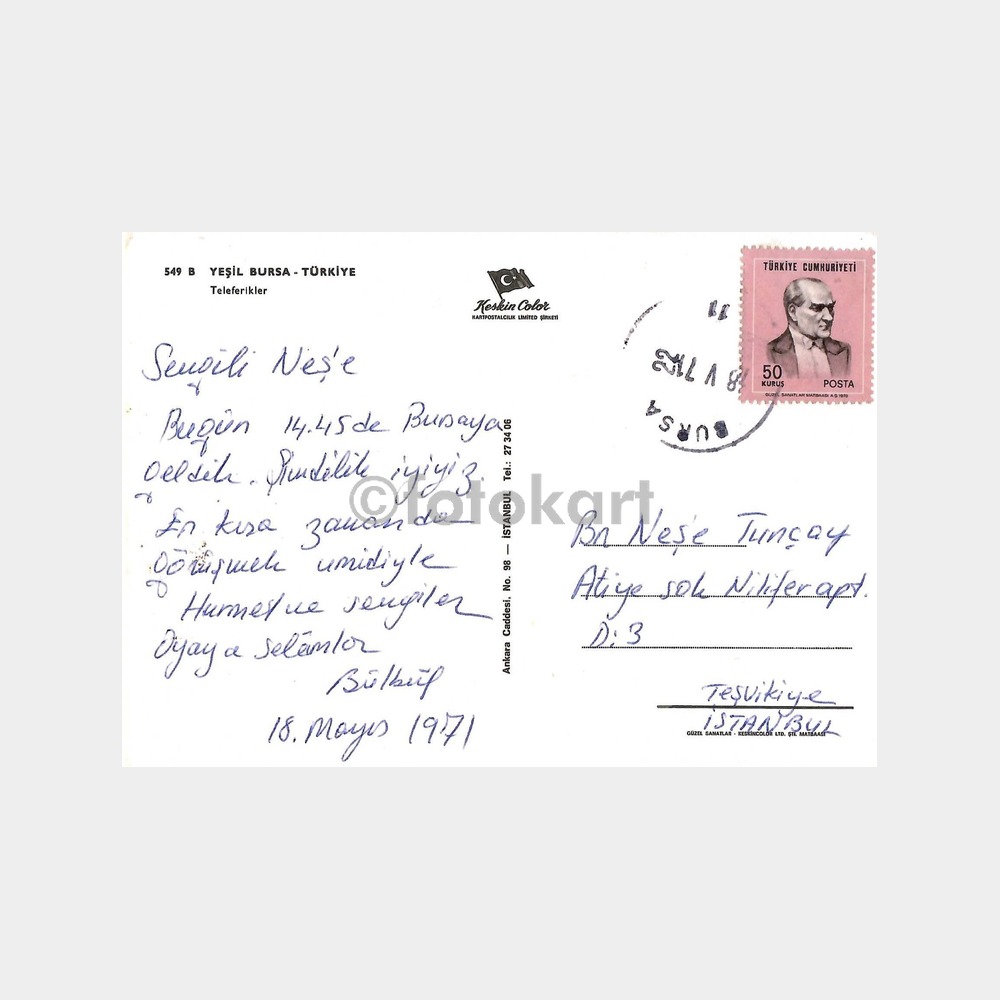 549 B YEŞİL BURSA - TÜRKİYE
Teleferikler
Keskin Color
KARTPOSTALCILIK LİMİTED ŞİRKETİ
TÜRKİYE CUMHURİYETİ
50
KURUŞ
POSTA
GÜZEL SANATLAR MATBAASI A.Ş. 1970
11
18 V 71
BURSA
Sevgili Neş'e
Bugün 14.45 de Bursaya
geldik. Şimdilik iyiyiz.
En kısa zamanda
görüşmek umidiyle
Hürmet ve sevgiler
Oyaya selâmlar
Bülbül
18. Mayıs 1971
Ankara Caddesi. No. 98 — İSTANBUL Tel.: 27 34 06
©fotokart
Bn Neş'e Tunçay
Atiye sok Nilifer apt.
D: 3
Teşvikiye
İSTANBUL
GÜZEL SANATLAR - KESKİNCOLOR LTD. ŞTİ. MATBAASI